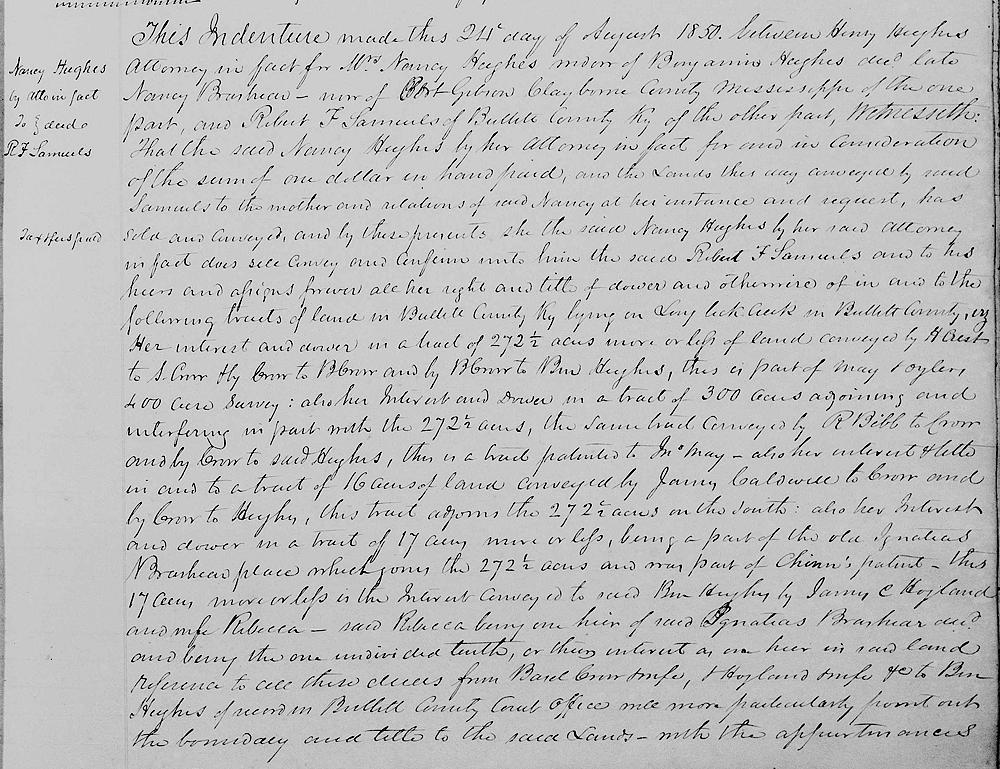 This Indenture made this 24th day of August 1850. between Henry Hughes
Attorney in fact for Mrs Nancy Hughes widow of Benjamin Hughes decd late
Nancy Brashear – now of Port Gibson Clayborne County Mississippi of the one
part, and Robert F Samuels of Bullitt County Ky of the other part, Witnesseth:
That the said Nancy Hughes by her Attorney in fact for and in Consideration
of the sum of one dollar in hand paid, and the Lands this day conveyed by said
Samuels to the mother and relations of said Nancy at her instance and request, has
sold and conveyed, and by these presents she the said Nancy Hughes by her said Attorney
in fact does sell Convey and Confirm unto him the said Robert F Samuels and to his
heirs and assigns forever all her right and title of dower and otherwise of in and to the
following tracts of land in Bullitt County Ky lying on Long lick Creek in Bullitt County,
Her interest and dower in a tract of 272½ acres more or less of land conveyed by H Crist
to S. Crow & by Crow to B Crow and by B Crow to Ben Hughes, this is part of May &
400 Acre Survey: also her Interest and Dower in a tract of 300 acres adjoining and
interfering in part with the 272½ acres, the same tract conveyed by R Bibb to Crow
and by Crow to said Hughes, this is a tract patented to Jno May – also her interest & title
in and to a tract of 16 acres of land conveyed by James Caldwell to Crow and
by Crow to Hughes, this tract adjoins the 272½ acres on the South: also her Interest
and dower in a tract of 17 acres more or less, being a part of the old Ignatius
Brashear place which joins the 272½ acres and was part of Chinn's patent – this
17 acres more or less is the Interest conveyed to said Ben Hughes by James C Hogland
and wife Rebecca – said Rebecca being one heir of said Ignatius Brashear decd
and being the one undivided tenth, or their interest as one heir in said land
reference to all these deeds from Basel Crow & wife, & Hogland & wife &c to Ben
Hughes of record in Bullitt County Court Office will more particularly point out
the boundary and title to the said Lands – with the appurtenances
Nancy Hughes
by Atto in fact
To } deed
R F Samuels
Tax & fees paid